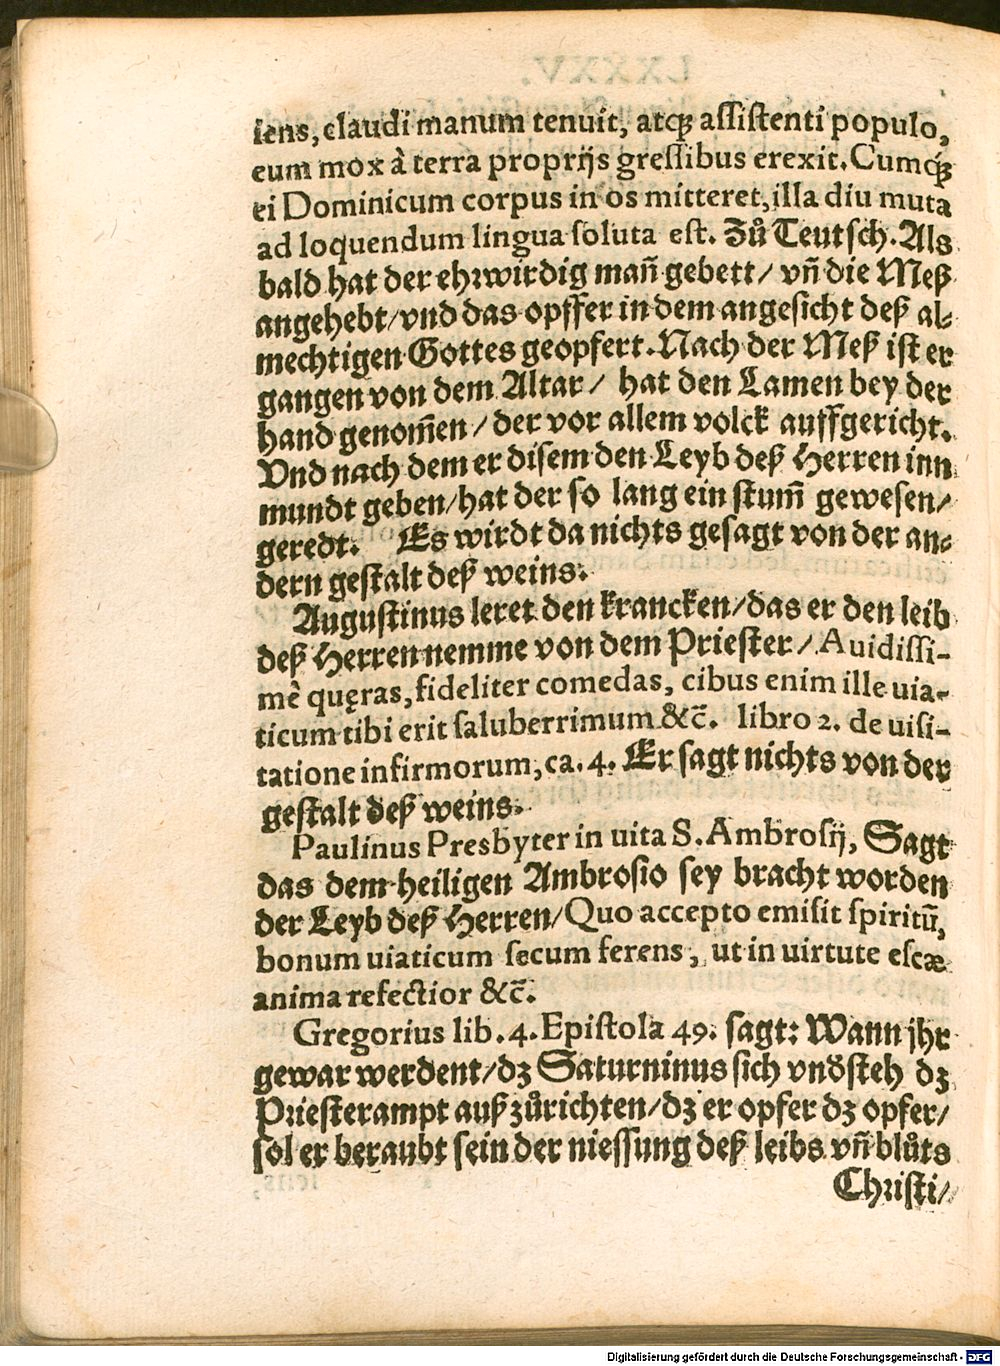 iens, claudi manum tenuit, atq́ꝫ aſſiſtenti populo,
eum mox à terra proprijs greſſibus erexit. Cumq́ꝫ
ei Dominicum corpus in os mitteret, illa diu muta
ad loquendum lingua ſoluta eſt. Zů Teutſch. Als
bald hat der ehꝛwirdig mañ gebett/ vñ die Meß
angehebt/ vnd das opffer in dem angeſicht deß al⸗
mechtigen Gottes geopfert. Nach der Meß iſt er
gangen von dem Altar/ hat den Lamen bey der
hand genom̃en/ der vor allem volck auffgericht.
Vnd nach dem er diſem den Leyb deß Herren inn
mundt geben/ hat der ſo lang ein ſtum̃ geweſen/
geredt. Es wirdt da nichts geſagt von der an⸗
dern geſtalt deß weins.
Auguſtinus leret den krancken/ das er den leib
deß Herren nemme von dem Prieſter/ Auidiſſi-
mê quęras, fideliter comedas, cibus enim ille uia-
ticum tibi erit ſaluberrimum &c̃. libro 2. de uiſi-
tatione infirmorum, ca. 4. Er ſagt nichts von der
geſtalt deß weins.
Paulinus Presbyter in uita S. Ambroſij, Sagt
das dem heiligen Ambroſio ſey bracht worden
der Leyb deß Herren/ Quo accepto emiſit ſpiritũ,
bonum uiaticum ſecum ferens, ut in uirtute eſcæ
anima refectior &c̃.
Gregorius lib. 4. Epiſtola 49. ſagt: Wann jhr
gewar werdent/ dꝫ Saturninus ſich vnd̓ſteh dꝫ
Prieſterampt auß zůrichten/ dꝫ er opfer dꝫ opfer/
ſol er beraubt ſein der nieſſung deß leibs vñ blůts
Chꝛiſti/
Digitalisierung gefördert durch die Deutsche Forschungsgemeinschaft - DFG